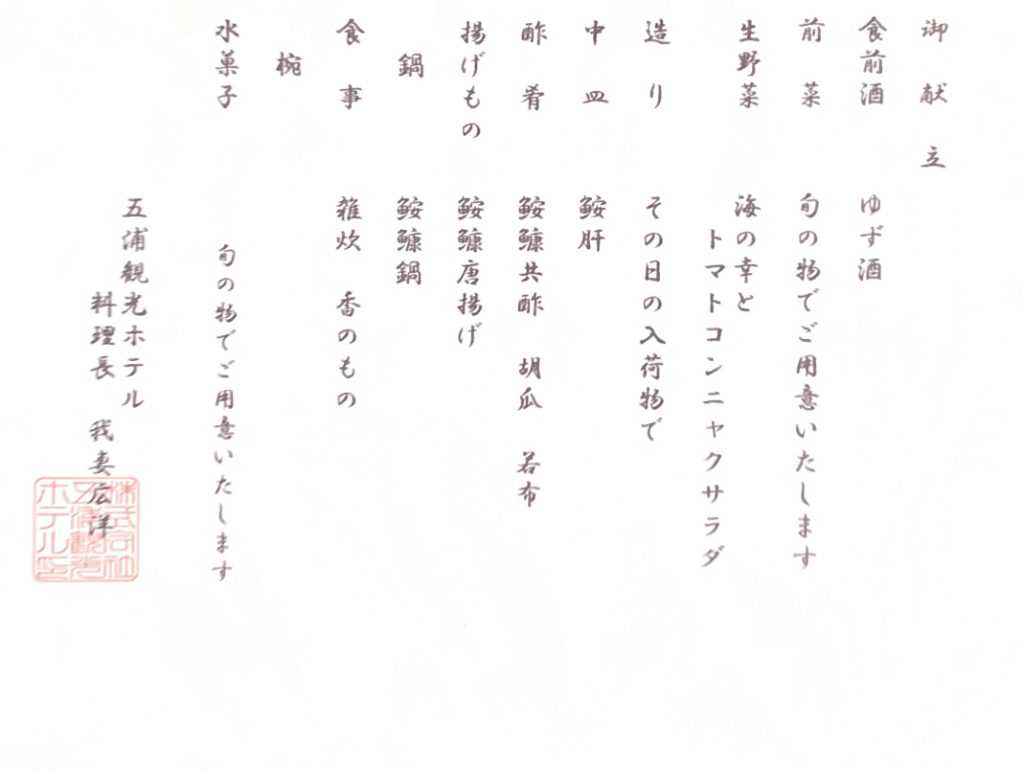 御献立
食前酒 ゆず酒
前菜 旬の物でご用意いたします
生野菜 海の幸と
トマトコンニャクサラダ
造り その日の入荷物で
中皿 鮟肝
酢肴 鮟鱇共酢 胡瓜 若布
揚げもの 鮟鱇唐揚げ
鍋 鮟鱇鍋
食事 雑炊 香のもの
椀
水菓子 旬の物でご用意いたします
五浦観光ホテル
料理長 我妻広洋
株式会社
五浦観光
ホテル印